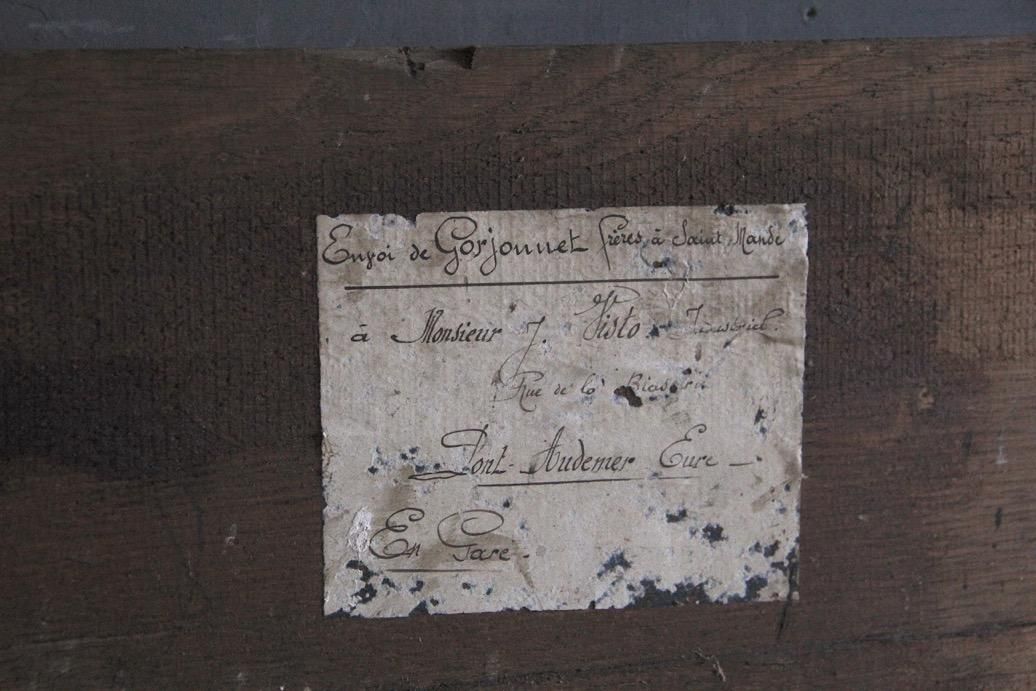 Envoi de Gorjonnet frères à Saint Mandé
à Monsieur J. Visto Industriel
Rue de la
Pont-Audemer Eure -
En Gare -